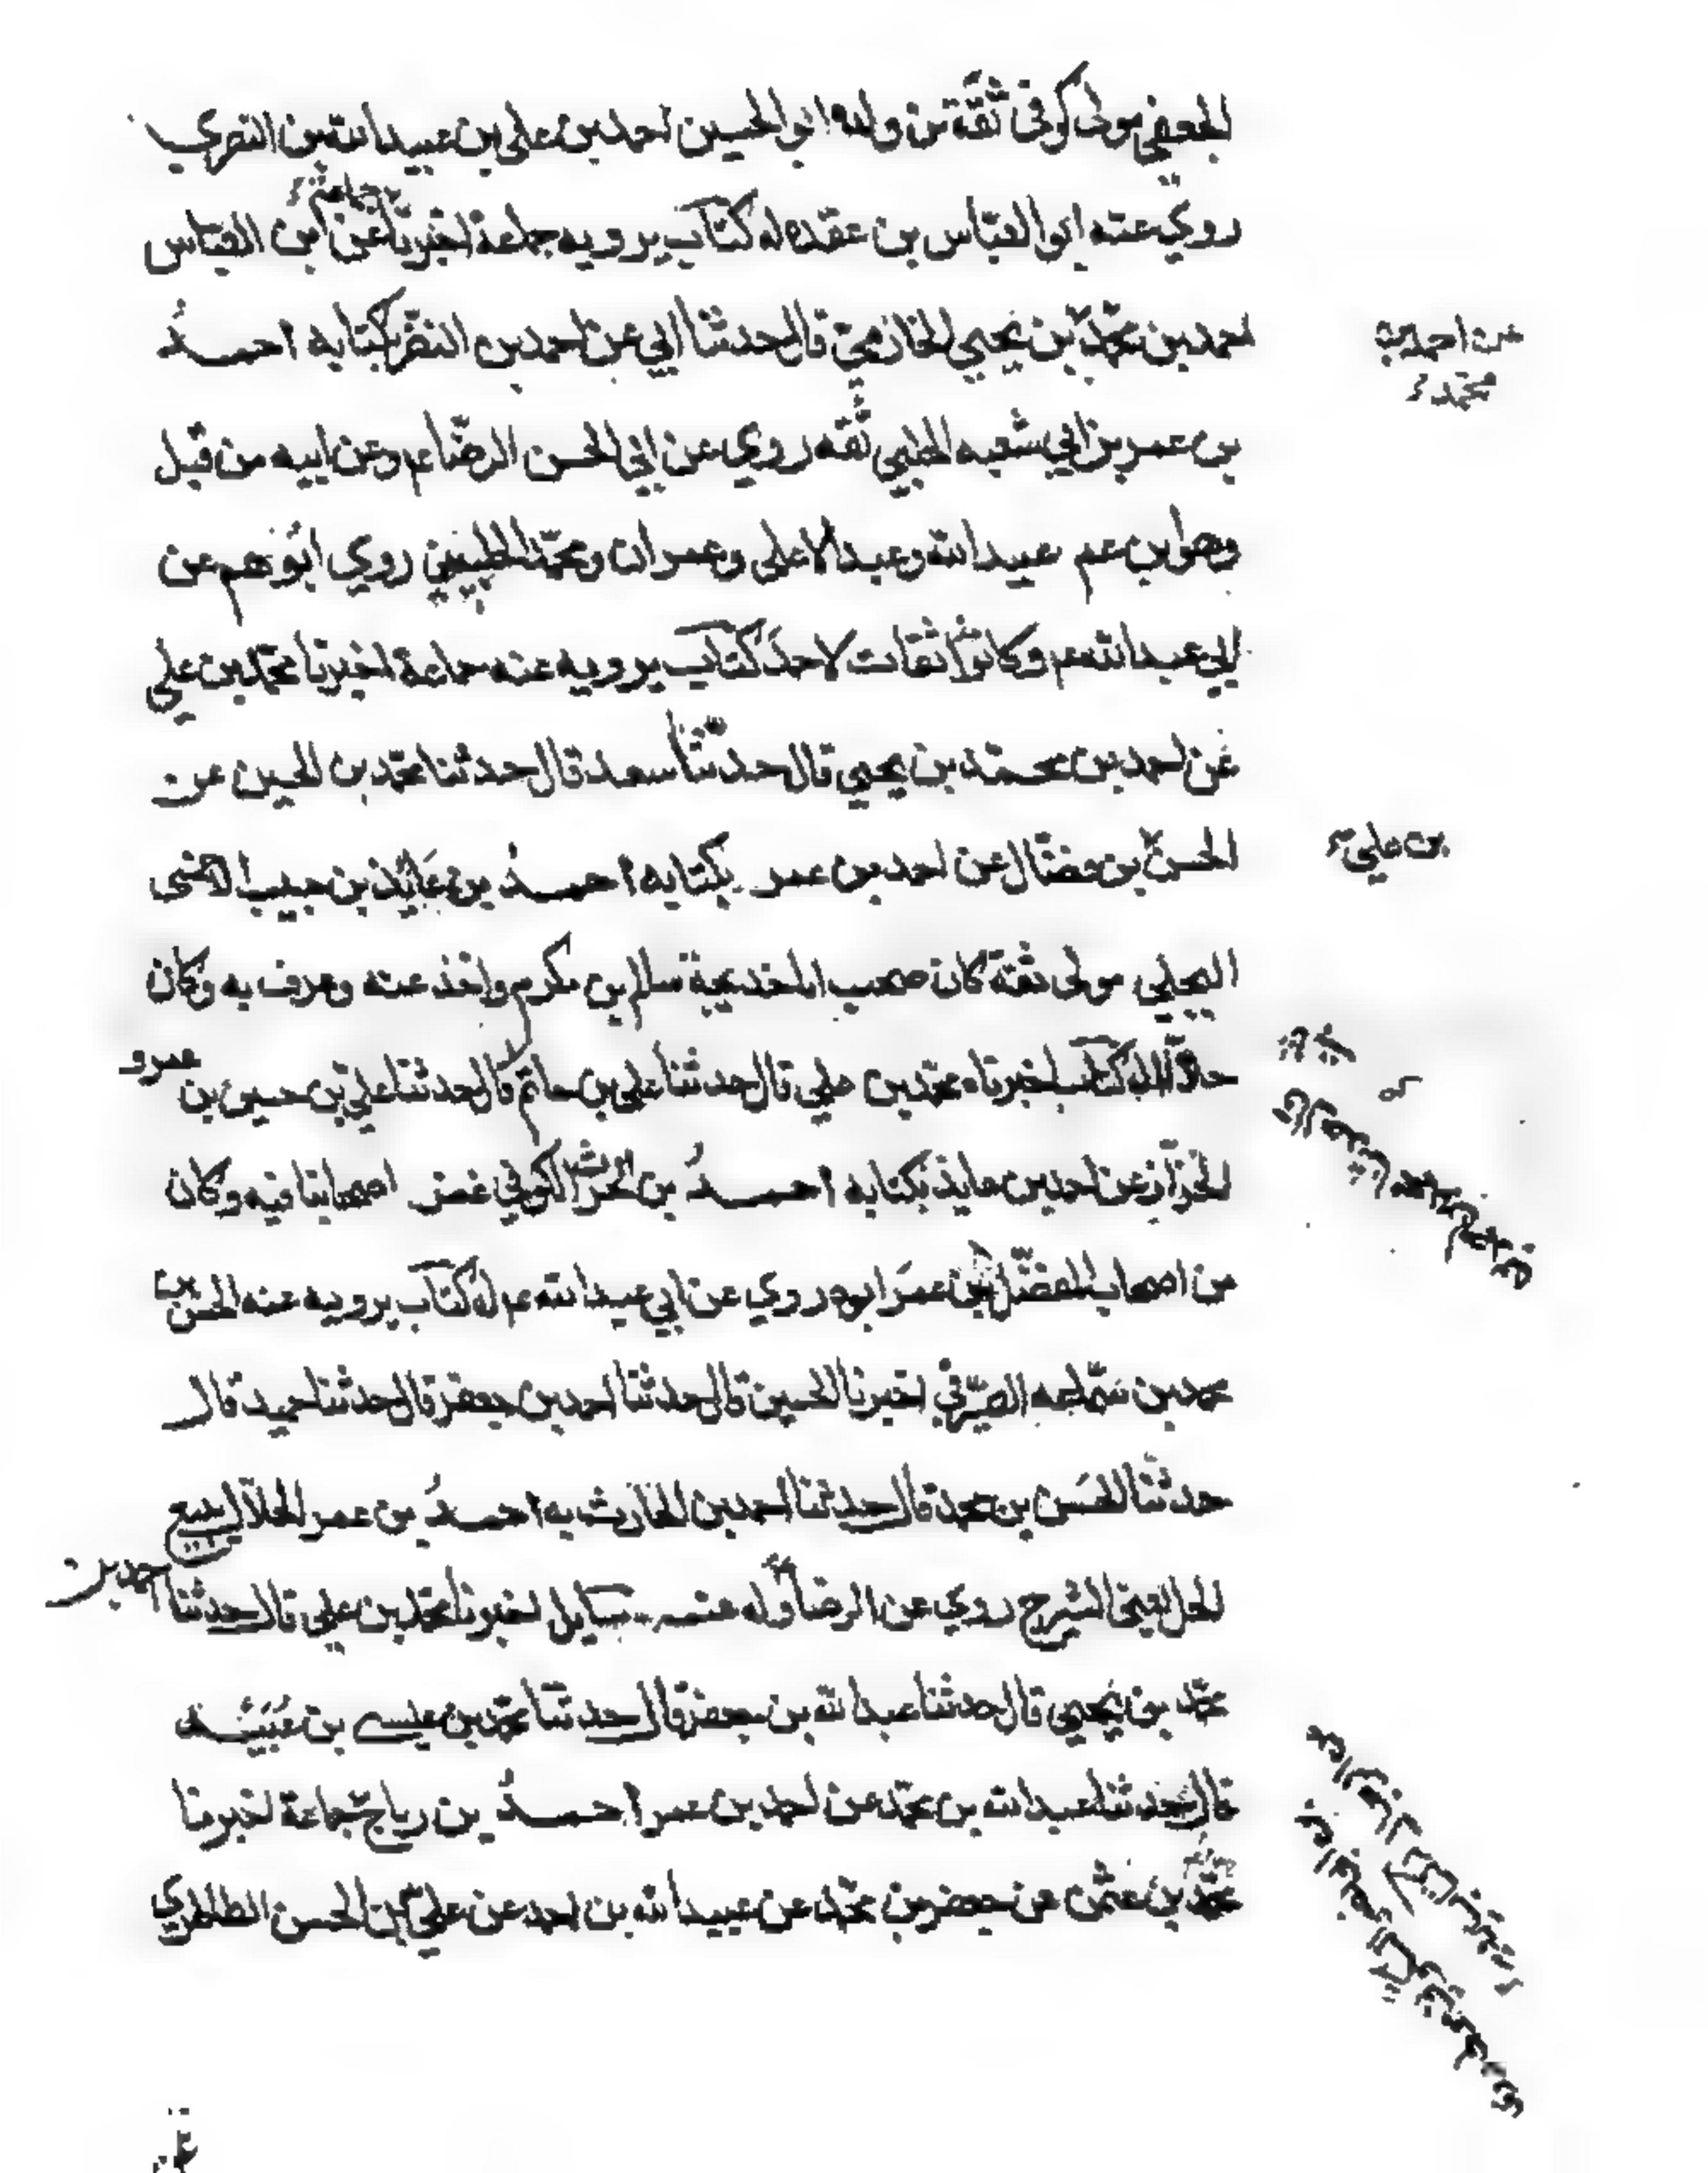 الجعفي مولى كوفى ثقة من ولده ابو الحسين احمد بن علي بن عبيد الله بن النضري
جماعة
روي عنه ابو العباس بن عقده له كتاب يرويه جماعة اخبرنا عن ابن العباس
احمد بن محمد بن يحيى الخازمي قال حدثنا ابي عن احمد بن النضر بكتابه احمد
عن احمد بن
محمد
بن عمر بن ابي شعبه الحلبي ثقه روي عن ابي الحسن الرضا عم وعن ابيه من قبل
وهو ابن عم عبيد الله وعبد الاعلى وعمران ومحمد الحلبيين روي ابوهم عن
ابي عبد الله عم وكانوا ثقات لاحمد كتاب يرويه عنه جماعة اخبرنا محمد بن علي
عن احمد بن محمد بن يحيى قال حدثنا سعد قال حدثنا محمد بن الحسين عن
الحسن بن فضال عن احمد بن عمر بكتابه احمد بن عايذ بن حبيب الاحمسى
بن علي
البجلي مولى ثقة كان صحب ابا خديجة سالم بن مكرم واخذ عنه وعرف به وكان
حلالا له كتاب اخبرناه محمد بن علي قال حدثنا علي بن حاتم قال حدثنا علي بن حسين بن عمرو
الخزاز عن احمد بن عايذ بكتابه احمد بن الحرث الكوفي غمز اصحابنا فيه وكان
من اصحاب المفضل بن عمر ابوه روي عن ابي عبد الله عم له كتاب يرويه عنه الحسن بن
محمد بن سماعه الصيرفي اخبرنا الحسين قال حدثنا احمد بن جعفر قال حدثنا حميد قال
حدثنا الحسن بن محمد قال حدثنا احمد بن الحارث به احمد بن عمر الحلال يبيع
الحل يعنى الشيرج روي عن الرضا وله عنه مسايل اخبرنا محمد بن علي قال حدثنا احمد بن
محمد بن يحيى قال حدثنا عبد الله بن جعفر قال حدثنا محمد بن عيسى بن عبيد
قال حدثنا عبد الله بن محمد عن احمد بن عمر احمد بن رباح جماعة اخبرنا
محمد بن عثمن عن جعفر بن محمد عن عبيد الله بن احمد عن علي بن الحسن الطاطري
عن